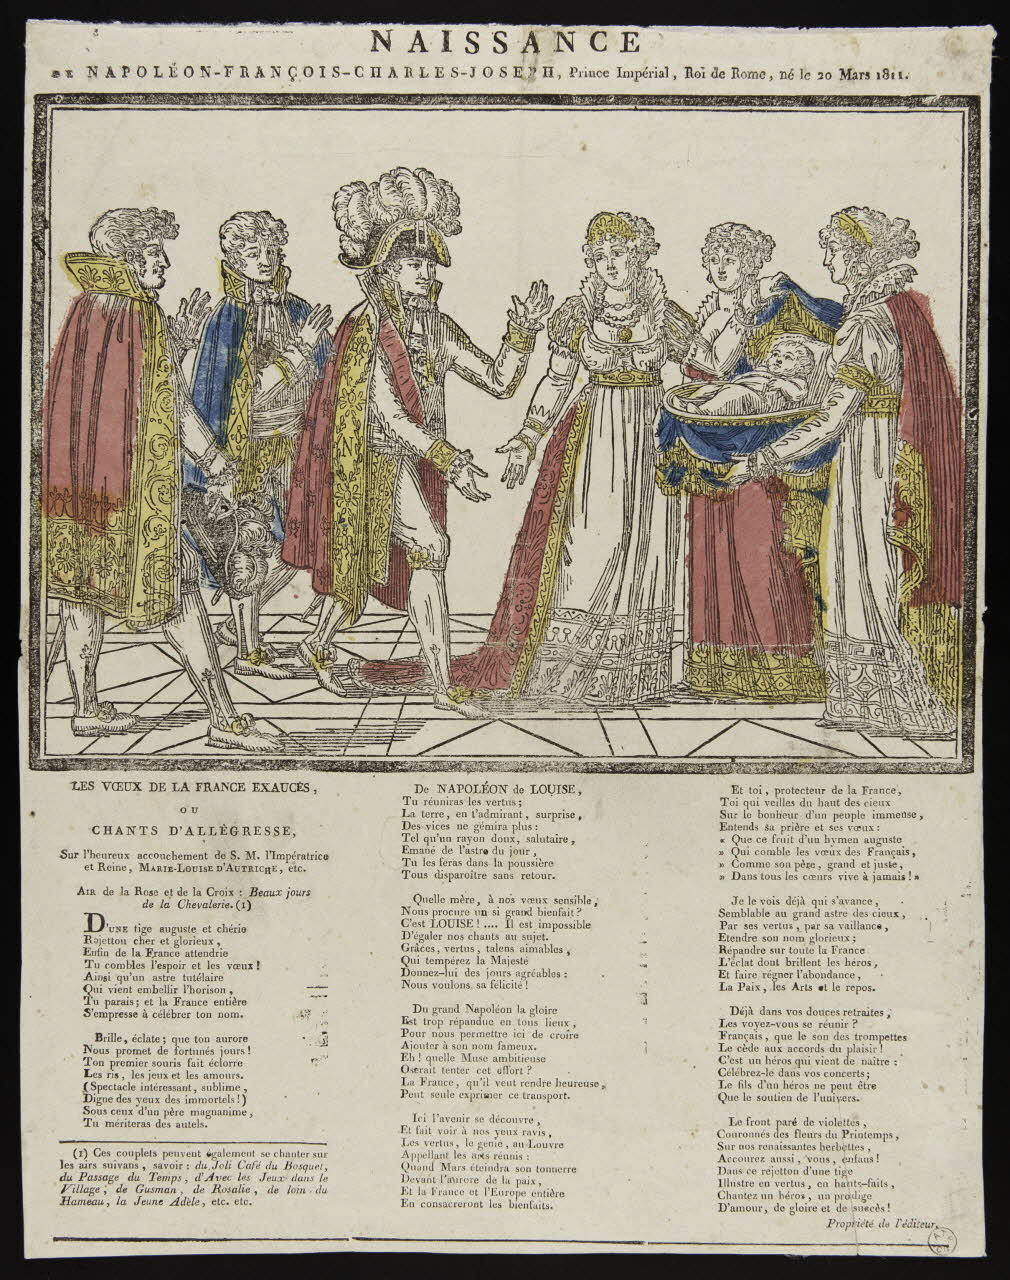 NAISSANCE
DE NAPOLÉON-FRANÇOIS-CHARLES-JOSEPH, Prince Impérial, Roi de Rome, né le 20 Mars 1811.
N
LES VŒUX DE LA FRANCE EXAUCÉS,
OU
CHANTS D'ALLÉGRESSE,
Sur l'heureux accouchement de S. M. l'Impératrice
et Reine, MARIE-LOUISE D'AUTRICHE, etc.
AIR de la Rose et de la Croix : Beaux jours
de la Chevalerie. (1)
D'UNE tige auguste et chérie
Rejettou cher et glorieux,
Enfin de la France attendrie
Tu combles l'espoir et les vœux !
Ainsi qu'un astre tutélaire
Qui vient embellir l'horison,
Tu parais ; et la France entière
S'empresse à célébrer ton nom.
Brille, éclate ; que ton aurore
Nous promet de fortunés jours !
Ton premier souris fait éclorre
Les ris, les jeux et les amours.
(Spectacle intéressant, sublime,
Digne des yeux des immortels !)
Sous ceux d'un père magnanime,
Tu mériteras des autels.
(1) Ces couplets peuvent également se chanter sur
les airs suivans, savoir : du Joli Café du Bosquet,
du Passage du Temps, d'Avec les Jeux dans le
Village, de Gusman, de Rosalie, de loin du
Hameau, la Jeune Adèle, etc. etc.
De NAPOLÉON de LOUISE,
Tu réuniras les vertus ;
La terre, en t'admirant, surprise,
Des vices ne gémira plus :
Tel qu'un rayon doux, salutaire,
Emané de l'astre du jour,
Tu les feras dans la poussière
Tous disparoître sans retour.
Quelle mère, à nos vœux sensible,
Nous procure un si grand bienfait ?
C'est LOUISE ! .... Il est impossible
D'égaler nos chants au sujet.
Grâces, vertus, talens aimables,
Qui tempérez la Majesté
Donnez-lui des jours agréables :
Nous voulons sa félicité !
Du grand Napoléon la gloire
Est trop répandue en tous lieux,
Pour nous permettre ici de croire
Ajouter à son nom fameux.
Eh ! quelle Muse ambitieuse
Oserait tenter cet effort ?
La France, qu'il veut rendre heureuse,
Peut seule exprimer ce transport.
Ici l'avenir se découvre,
Et fait voir à nos yeux ravis,
Les vertus, le génie, au Louvre
Appellant les arts réunis :
Quand Mars éteindra son tonnerre
Devant l'aurore de la paix,
Et la France et l'Europe entière
En consacreront les bienfaits.
Et toi, protecteur de la France,
Toi qui veilles du haut des cieux
Sur le bonheur d'un peuple immense,
Entends sa prière et ses vœux :
« Que ce fruit d'un hymen auguste
» Qui comble les vœux des Français,
» Comme son père, grand et juste,
» Dans tous les cœurs vive à jamais ! »
Je le vois déjà qui s'avance,
Semblable au grand astre des cieux,
Par ses vertus, par sa vaillance,
Etendre son nom glorieux ;
Répandre sur toute la France
L'éclat dont brillent les héros,
Et faire régner l'abondance,
La Paix, les Arts et le repos.
Déjà dans vos douces retraites,
Les voyez-vous se réunir ?
Français, que le son des trompettes
Le cède aux accords du plaisir !
C'est un héros qui vient de naître :
Célébrez-le dans vos concerts ;
Le fils d'un héros ne peut être
Que le soutien de l'univers.
Le front paré de violettes,
Couronnés des fleurs du Printemps,
Sur nos renaissantes herbettes,
Accourez aussi, vous, enfans !
Dans ce rejetton d'une tige
Illustre en vertus, en hauts-faits,
Chantez un héros, un prodige
D'amour, de gloire et de succès !
Propriété de l'éditeur.